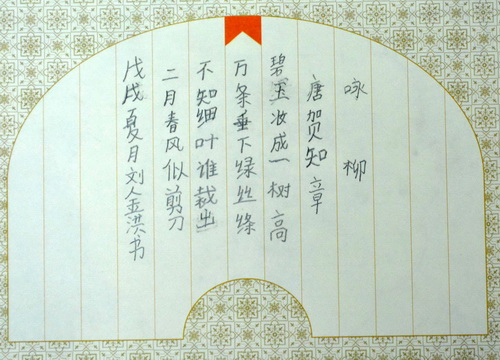 咏柳
唐贺知章
碧玉妆成一树高
万条垂下绿丝绦
不知细叶谁裁出
二月春风似剪刀
戊戌夏月刘人玉洪书